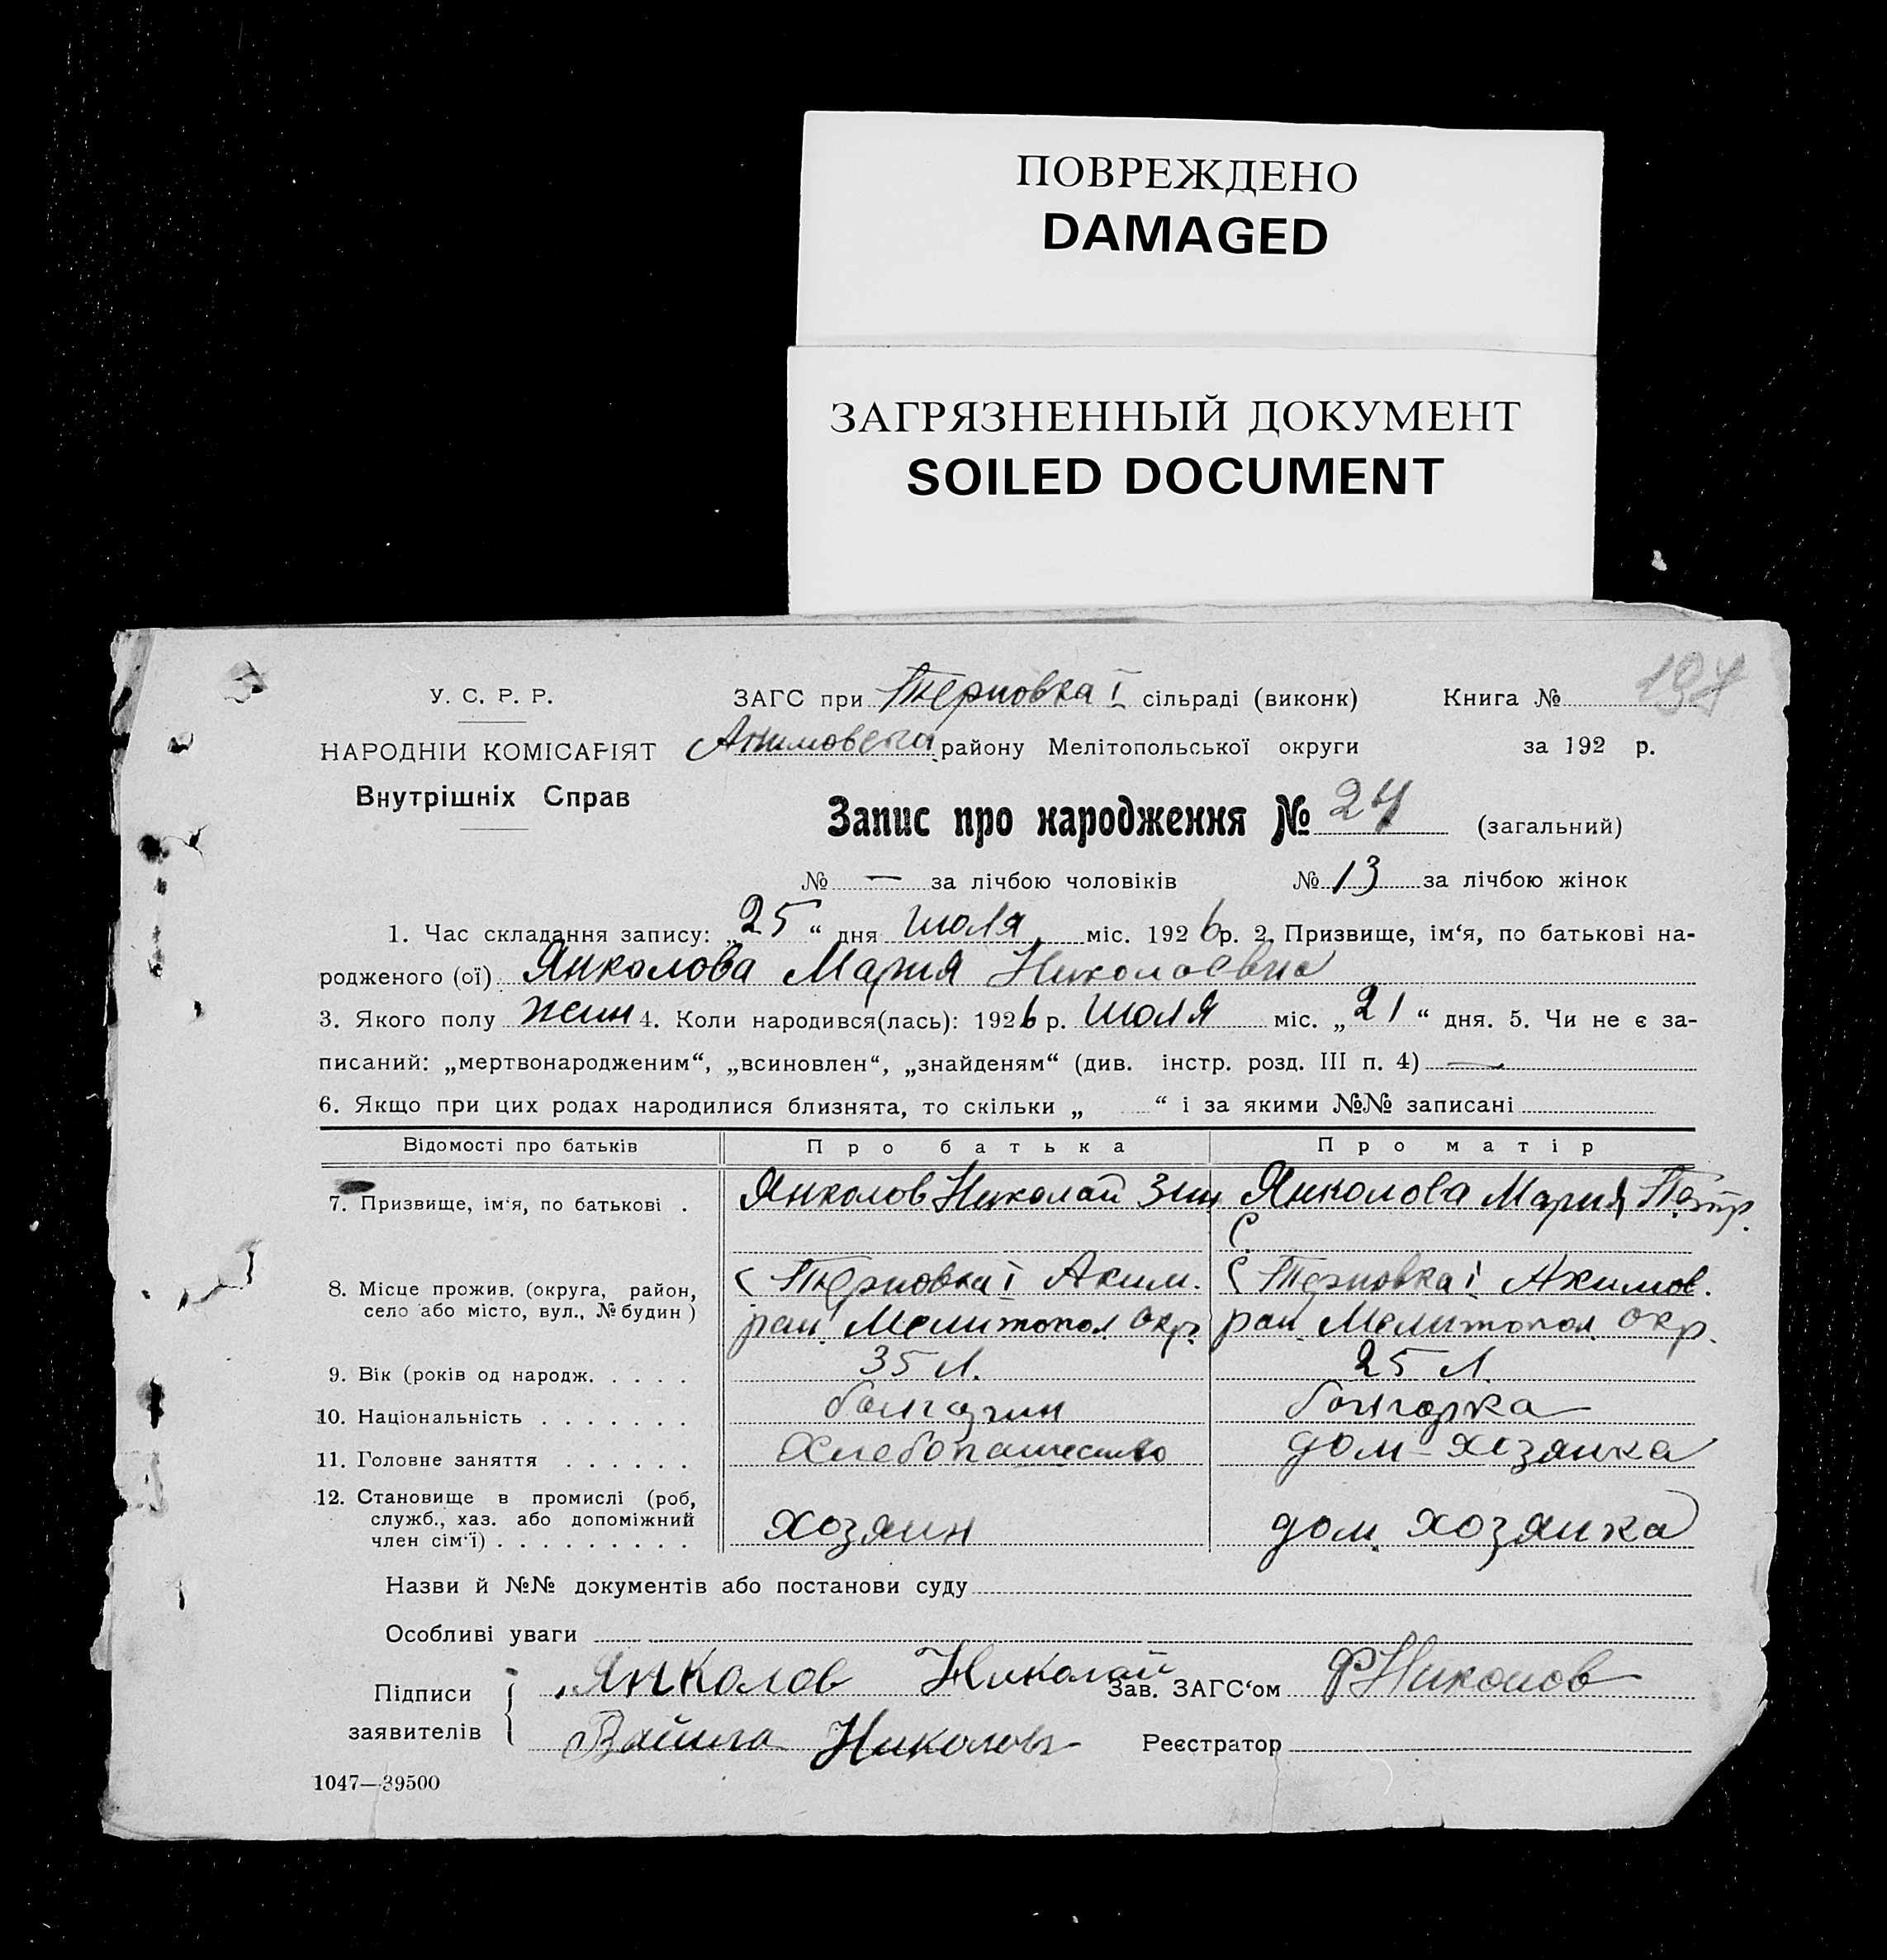 ПОВРЕЖДЕНО
DAMAGED
ЗАГРЯЗНЕННЫЙ ДОКУМЕНТ
SOILED DOCUMENT
У. С. Р. Р.
НАРОДНІЙ КОМІСАРІЯТ
Внутрішніх Справ
ЗАГС при Терновка I сільраді (виконк)
Книга №
района Мелітопольської округи
за 192 р.
Запис про народження № 24 (загальний)
№ — за лічбою чоловіків № 13 за лічбою жінок
1. Час складання запису: „25“ дня июля міс. 1926 р. 2. Призвище, ім‘я, по батькові на-
родженого (ої) Янколова Мария Николаевна
3. Якого полу жен 4. Коли народився(лась): 1926 р. июля міс. „21“ дня. 5. Чи не є за-
писаний: „мертвонародженим“, „всиновлен“, „знайденям“ (див. інстр. розд. III п. 4) —
6. Якщо при цих родах народилися близнята, то скільки „ “ і за якими №№ записані
Відомості про батьків Про батька Про матір
7. Призвище, ім‘я, по батькові . Янколов Николай Зин Янколова Мария Петр.
8. Місце прожив. (округа, район,
село або місто, вул., № будин)
с Терновка I Аким. с Терновка I Акимов.
рай. Мелитопол окр. рай. Мелитопол окр.
9. Вік (років од народж. . . . . 35 л. 25 л.
10. Національність . . . . . . . болгарин болгарка
11. Головне заняття . . . . . . Хлебопашество дом-хозяйка
12. Становище в промислі (роб,
служб., хаз. або допоміжний
член сім‘ї) . . . . . . . . . хозяин дом. хозяйка
Назви й №№ документів або постанови суду
Особливі уваги
Підписи
заявителів
Янколов Николай
Николов
Зав. ЗАГС‘ом
Реєстратор
1047—39500